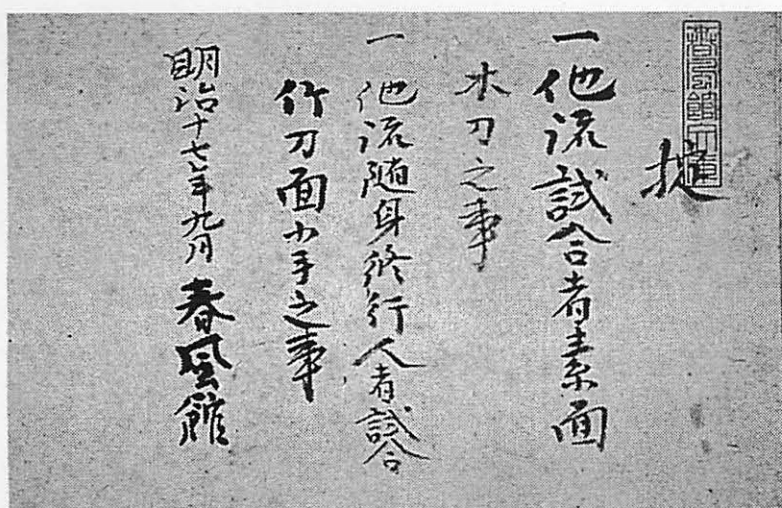 掟
一他流試合者素面
木刀之事
一他流随身修行人者試合
竹刀面小手之事
明治十七年九月 春風館